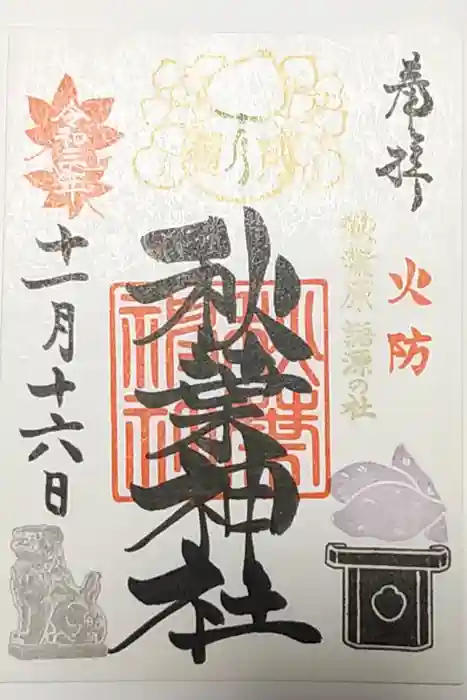 奉拝
火防
秋葉原語源の社
秋葉神社
秋葉神社
令和二年
十一月十六日